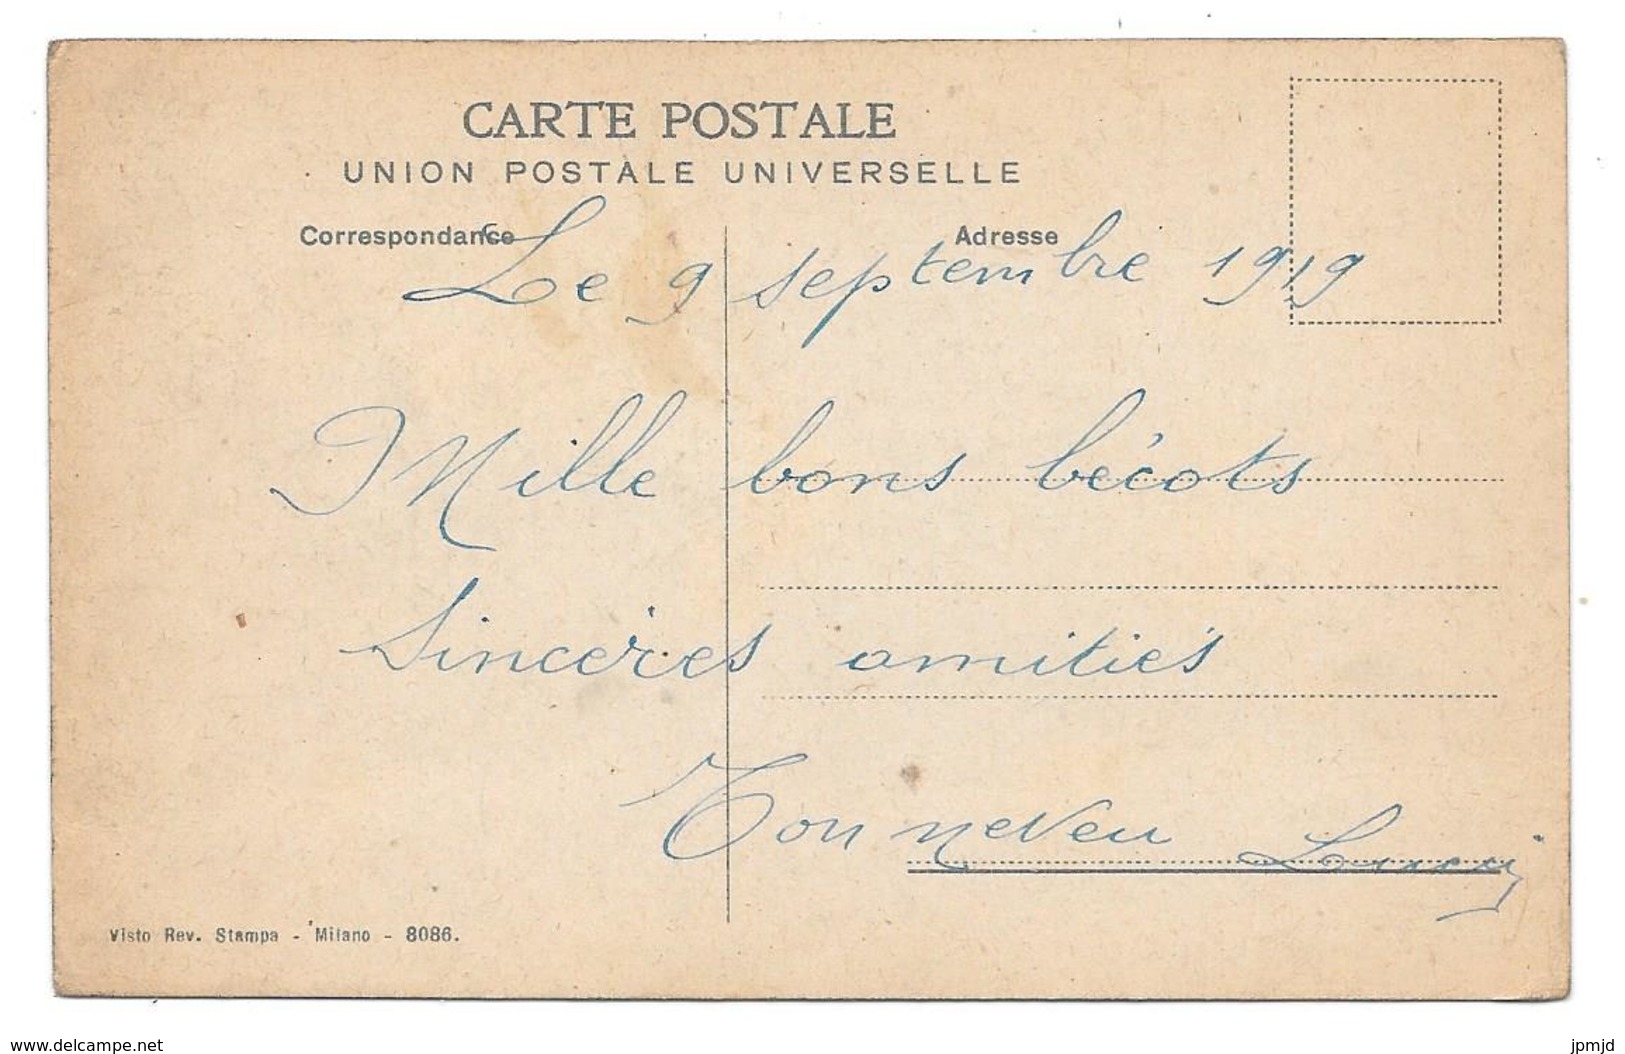 CARTE POSTALE
UNION POSTALE UNIVERSELLE
Correspondance Adresse
Le 9 septembre 1919
Mille bons bécots
Sincères amitiés
Ton neveu
Visto Rev. Stampa - Milano - 8086.
www.delcampe.net jpmjd